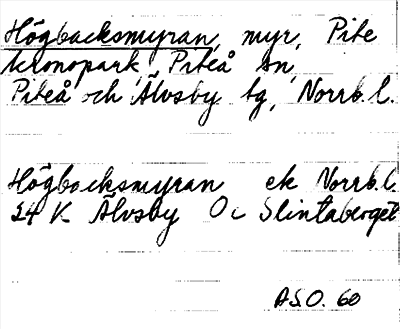 Högbacksmyran, myr, Pite
kronopark, Piteå sn,
Piteå och Älvsby tg, Norrb.l.
Högbacksmyran ek Norrb.l.
24 K Älvsby Oc Slintaberget
A.S.O. 60